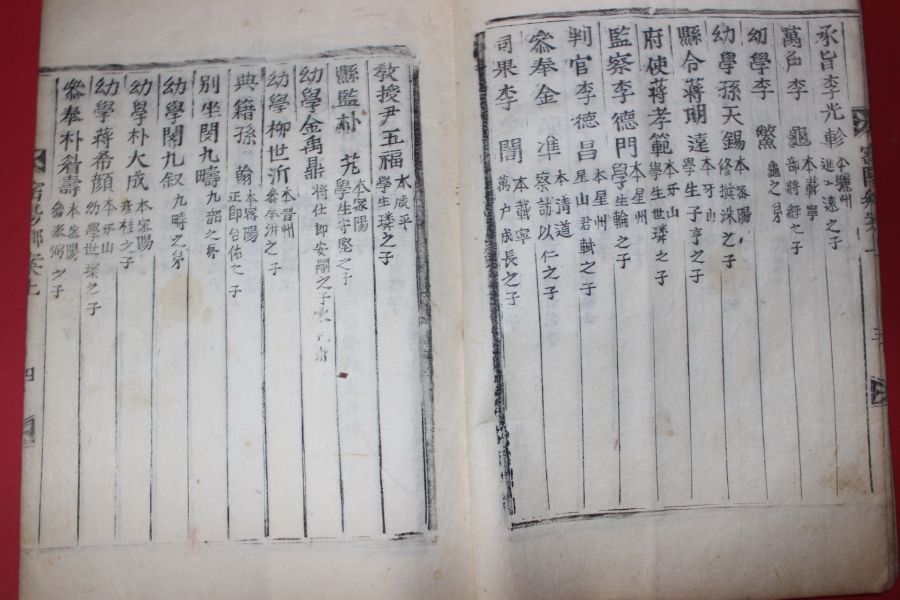 承旨李光軫 本驪州 進士遠之子
萬戶李龜 本載寧 部將經之子
幼學李鱉 龜之弟
幼學孫天錫 本密陽 修撰洙之子
縣令蔣期達 本牙山 學生子亨之子
府使蔣孝範 本牙山 學生世璘之子
監察李德門 本星州 學生輪之子
判官李德昌 本星州 星山君軾之子
參奉金準 本清道 察訪以仁之子
司果李誾 本載寧 萬户成長之子
教授尹五福 本咸平 學生璘之子
縣監朴芚 本密陽 學生守堅之子
幼學金禹鼎 將仕郎安嗣之子
幼學柳世沂 本晋州 之子
典籍孫翰 本密陽 正郎台佑之子
別坐閔九疇 九韶之弟
幼學閔九叙 九疇之弟
幼學朴大成 本密陽 之子
幼學蔣希顏 本牙山 幼學世琛之子
參奉朴耆壽 本密陽 之子
四